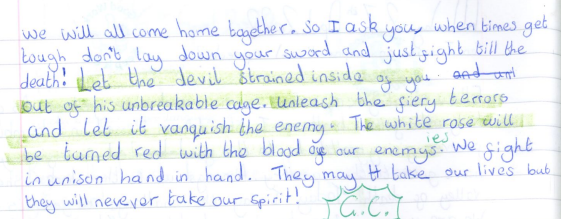 we will all come home together. So I ask you, when times get
tough don't lay down your sword and just fight till the
death! Let the devil strained inside of you and unl
out of his unbreakable cage. Unleash the fiery terrors
and let it vanquish the enemy. The white rose will
be turned red with the blood of our enemys.ies We fight
in unison hand in hand. They may tt take our lives but
they will never ever take our spirit! G.C.